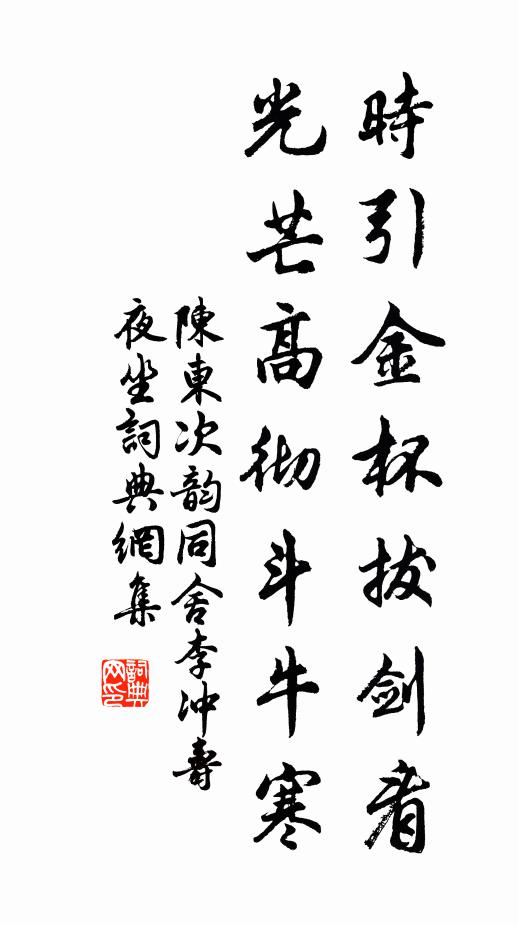 時引金杯拔劍看
光芒高彻斗牛寒
陳東次韵同舍李冲壽
夜坐詞典網集
詞典网印